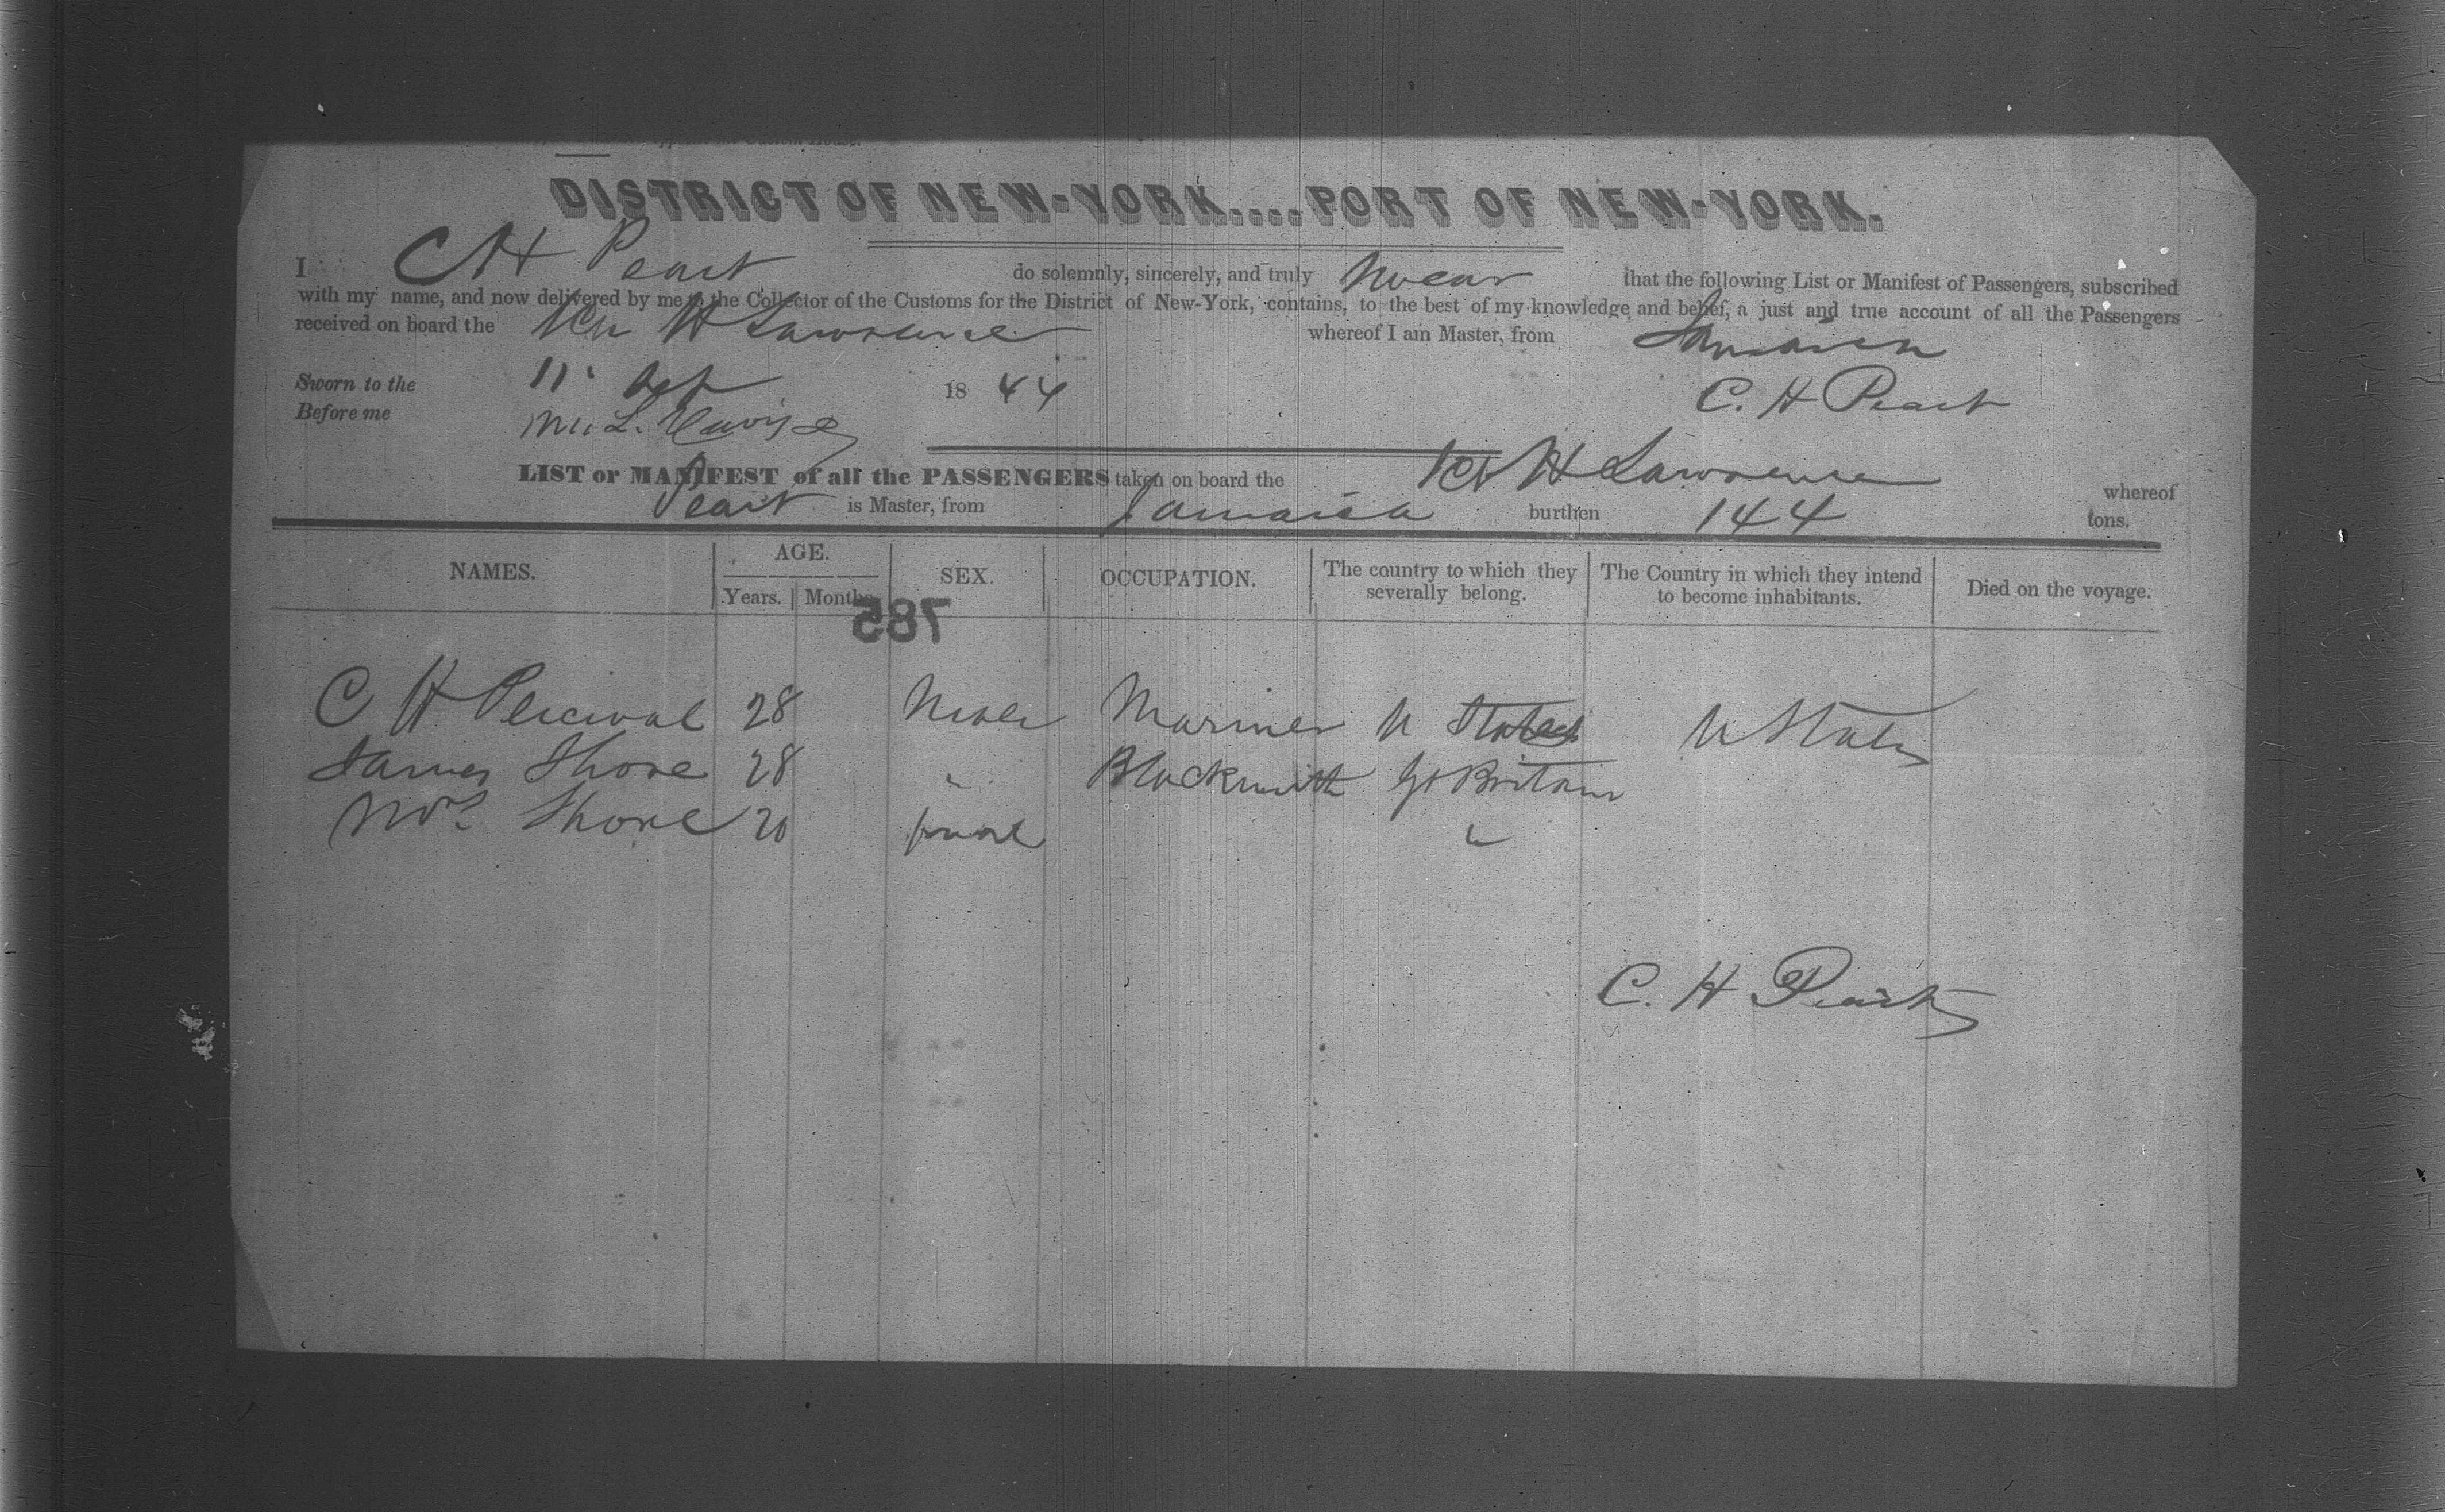 DISTRICT OF NEW-YORK....PORT OF NEW-YORK.
I C H Peart do solemnly, sincerely, and truly swear that the following List or Manifest of Passengers, subscribed
with my name, and now delivered by me to the Collector of the Customs for the District of New-York, contains, to the best of my knowledge and belief, a just and true account of all the Passengers
received on board the Wm H Lawrence whereof I am Master, from Jamaica
Sworn to the 11 1844 C. H Peart
Before me
LIST or MANIFEST of all the PASSENGERS taken on board the W H Lawrence whereof
Peart is Master, from Jamaica burthen 144 tons.
NAMES. AGE. SEX. OCCUPATION. The country to which they severally belong. The Country in which they intend to become inhabitants. Died on the voyage.
Years. Months.
785
C H Percival 28 Male Mariner U States U States
James Shore 28 " Blacksmith Gt Britain
Mrs Shore 20 female "
C. H Peart